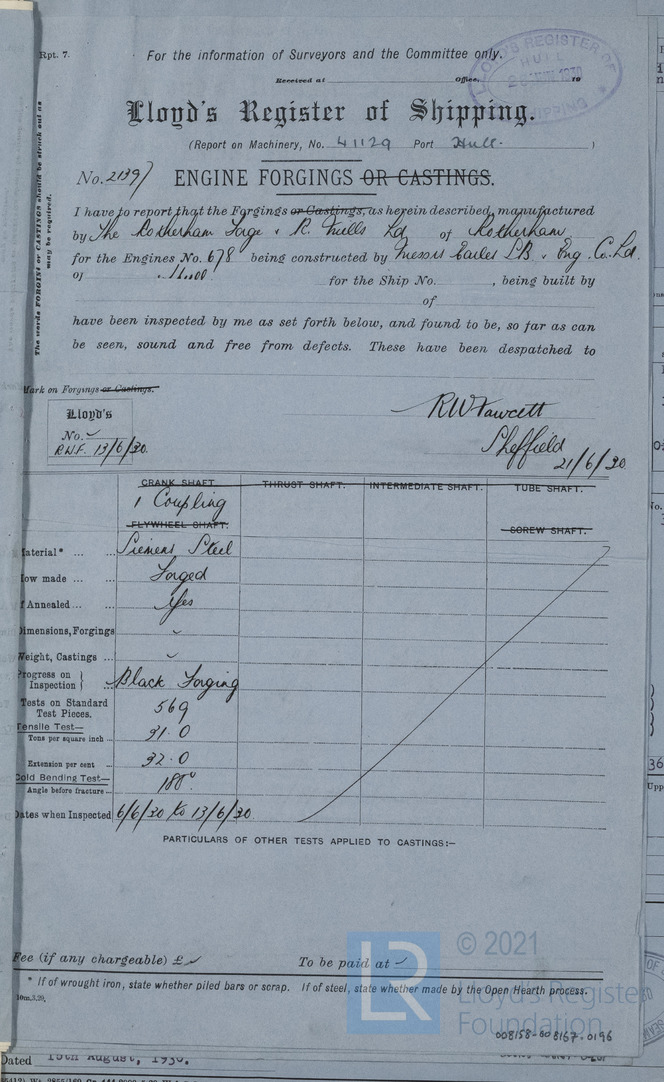 Rpt. 7.
For the information of Surveyors and the Committee only.
Received at Office,
LLOYD'S REGISTER OF
HULL
SHIPPING
Lloyd's Register of Shipping.
(Report on Machinery, No. 41129 Port Hull. )
No. 2139
ENGINE FORGINGS OR CASTINGS.
The words FORGING or CASTINGS should be struck out as may be required.
I have to report that the Forgings or Castings, as herein described, manufactured
by The Rotherham Forge & R. Mills Ld of Rotherham
for the Engines No. 678 being constructed by Messrs Earles SB & Eng. Co. Ld.
of Hull for the Ship No. , being built by
of
have been inspected by me as set forth below, and found to be, so far as can
be seen, sound and free from defects. These have been despatched to
Mark on Forgings or Castings.
Lloyd's
No.
RWF. 13/6/30.
RW Fawcett
Sheffield
21/6/30
CRANK SHAFT THRUST SHAFT. INTERMEDIATE SHAFT. TUBE SHAFT.
1 Coupling
FLYWHEEL SHAFT. SCREW SHAFT.
Material* ... ... Siemens Steel
How made ... ... Forged
If Annealed ... ... Yes
Dimensions, Forgings
Weight, Castings ...
Progress on Inspection } ... Black Forging
Tests on Standard Test Pieces. 569
Tensile Test—
Tons per square inch ... 31.0
Extension per cent ... 32.0
Cold Bending Test—
Angle before fracture ... 180°
Dates when Inspected 6/6/30 to 13/6/30
PARTICULARS OF OTHER TESTS APPLIED TO CASTINGS:—
Fee (if any chargeable) £ To be paid at
* If of wrought iron, state whether piled bars or scrap. If of steel, state whether made by the Open Hearth process.
10m,3,29.
LR
© 2021
Lloyd's Register
Foundation
008158-008167-0196
Dated 18th August, 1930.